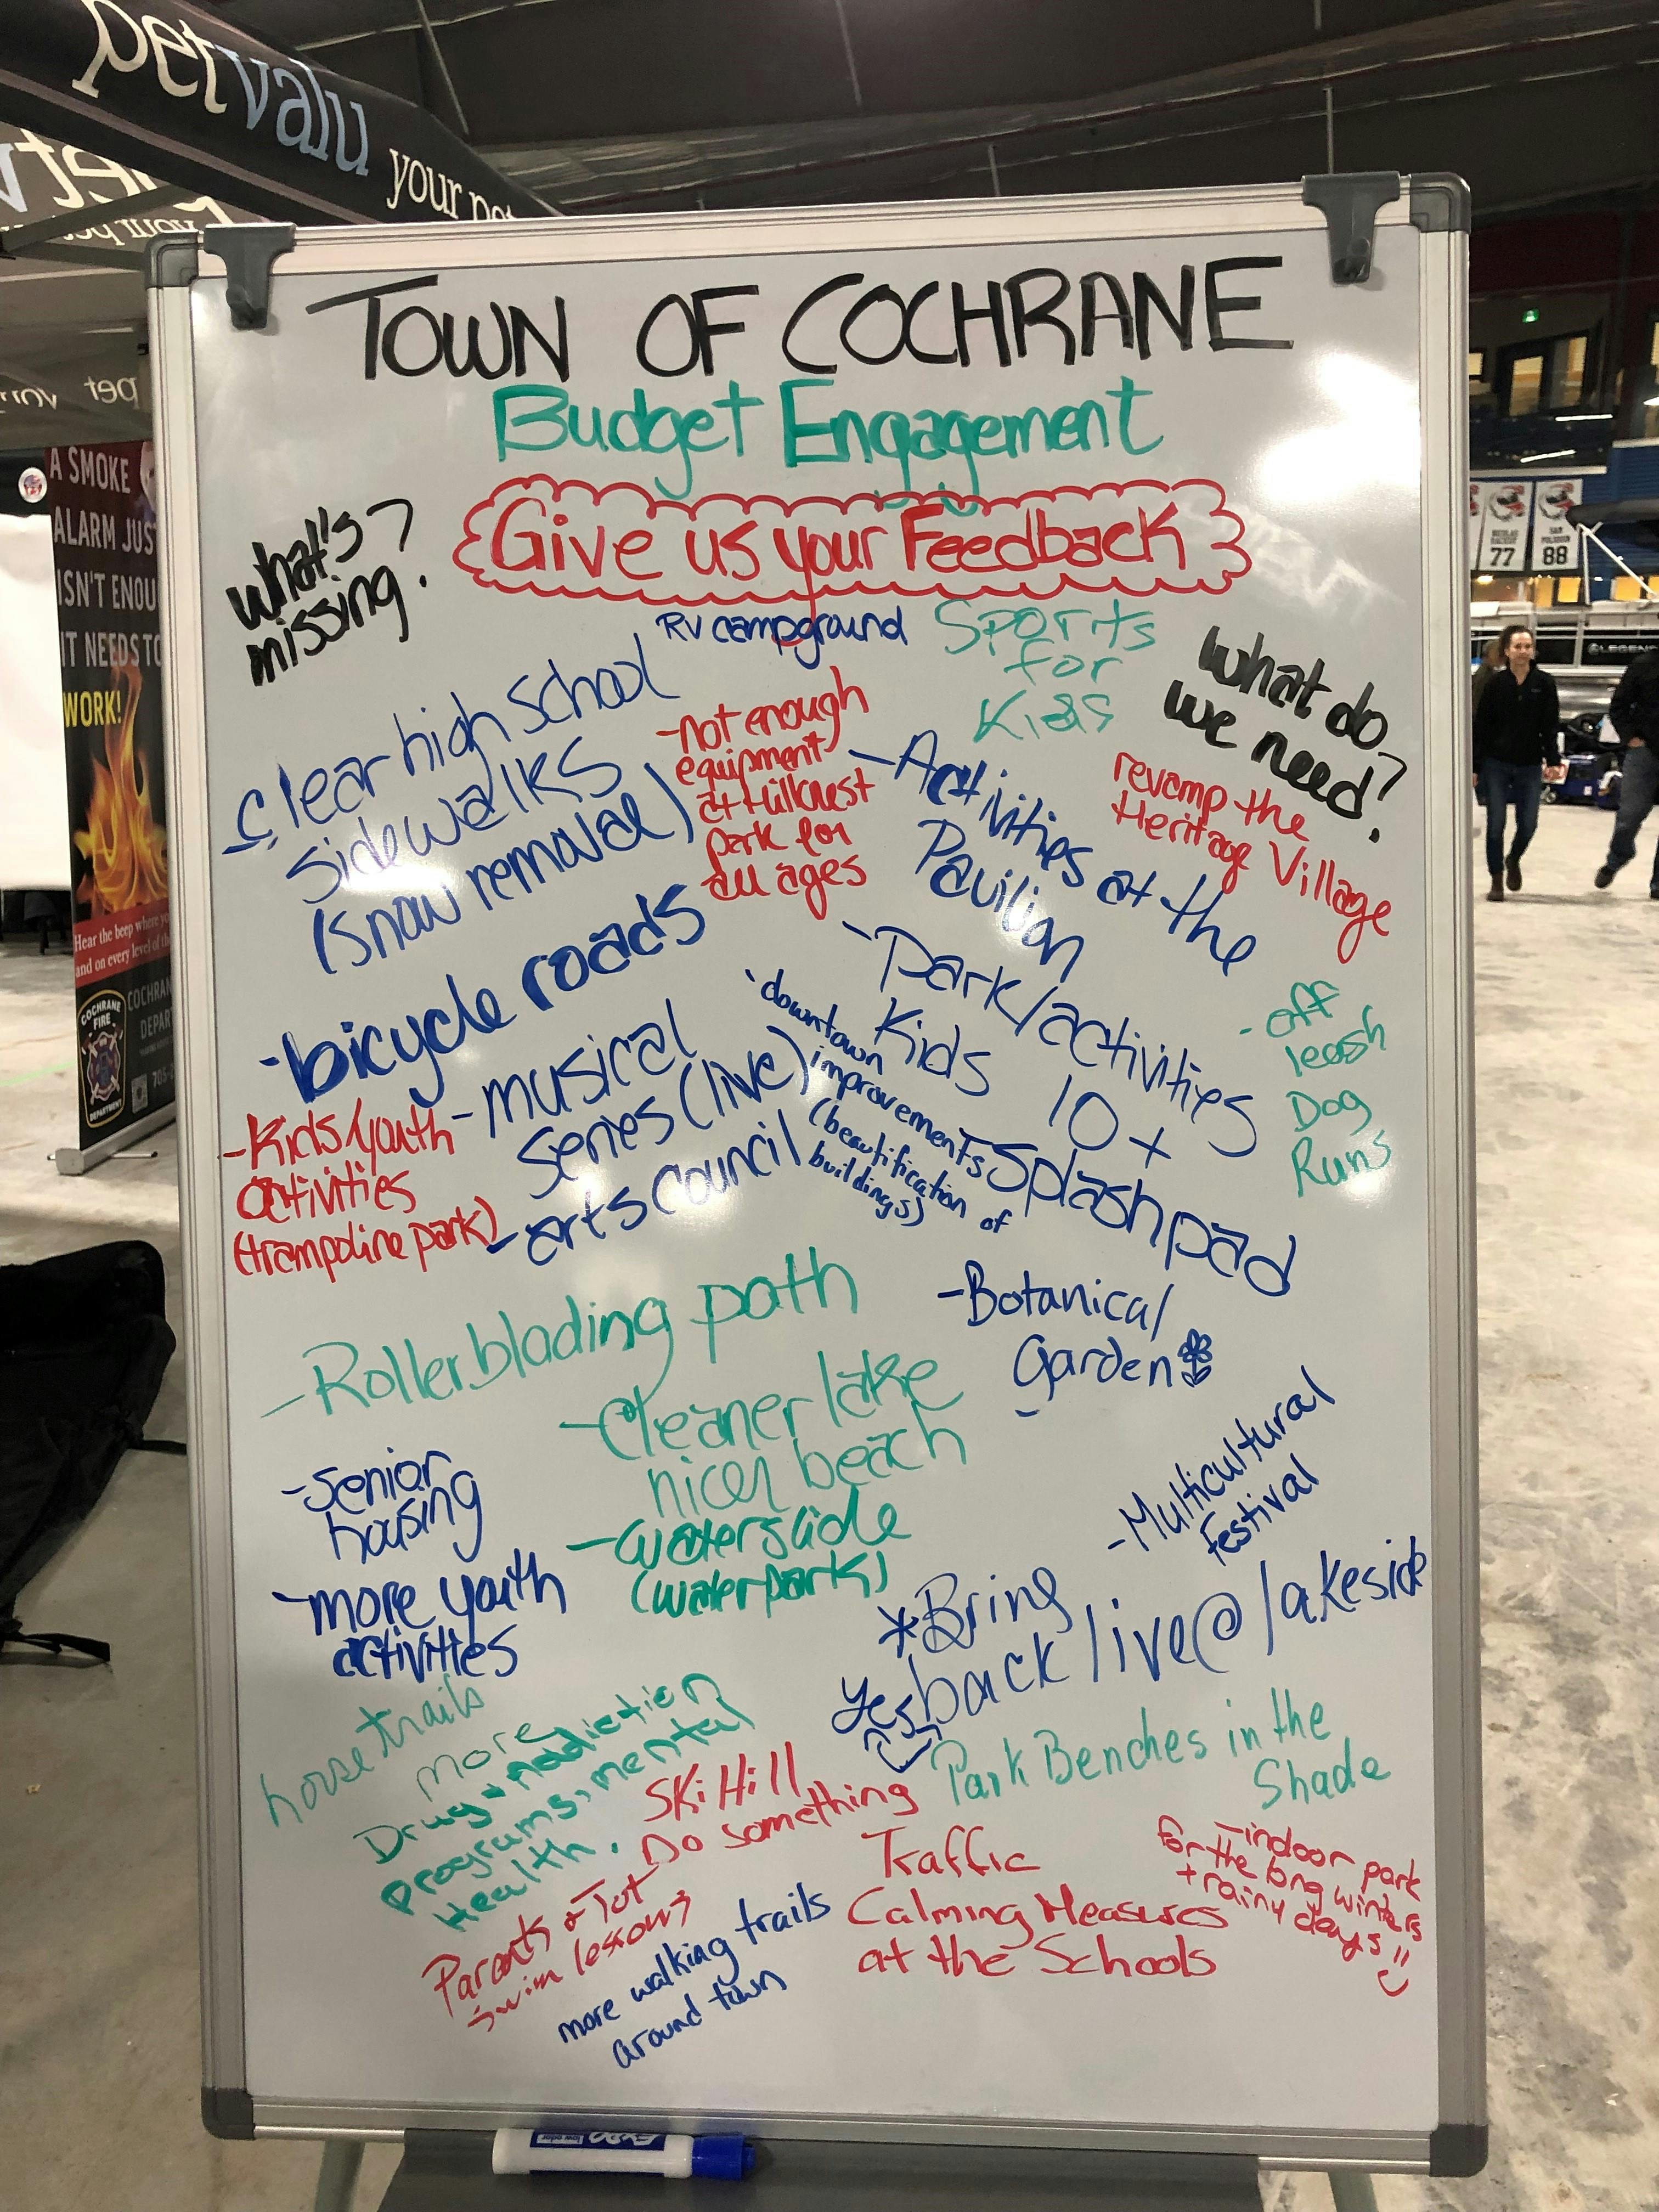 petvalu your pet
A SMOKE
ALARM JUS
ISN'T ENOU
IT NEEDS TO
WORK!
Hear the beep where yo
and on every level of th
COCHRANE
FIRE
DEPARTMENT
COCHRAN
DEPAR
705-
77
88
LEGEND
TOWN OF COCHRANE
Budget Engagement
Give us your Feedback
what's
missing?
RV campground
Sports
for
Kids
what do
we need?
- clear high school
sidewalks
(snow removal)
-not enough
equipment
at Hillcrest
park for
all ages
-Activities at the
Pavilion
revamp the
Heritage Village
-bicycle roads
-Park/activities
Kids 10+
-off
leash
Dog
Runs
-musical
series (live)
-arts council
-downtown
improvements
(beautification of
buildings)
-Splashpad
-Kids/youth
activities
(trampoline park)
-Rollerblading path
-Botanical
Garden
-Cleaner lake
nicer beach
-senior
housing
-waterslide
(waterpark)
-Multicultural
Festival
-more youth
activities
*Bring
back live@lakeside
yes
horse trails
more
Drug + Addiction
programs, mental
Health.
Ski Hill
Do something
Park Benches in the
Shade
Traffic
Calming Measures
at the Schools
-indoor park
for the long winters
+ rainy days
Parents & Tot
swim lessons
more walking trails
around town
EXPO
low odor